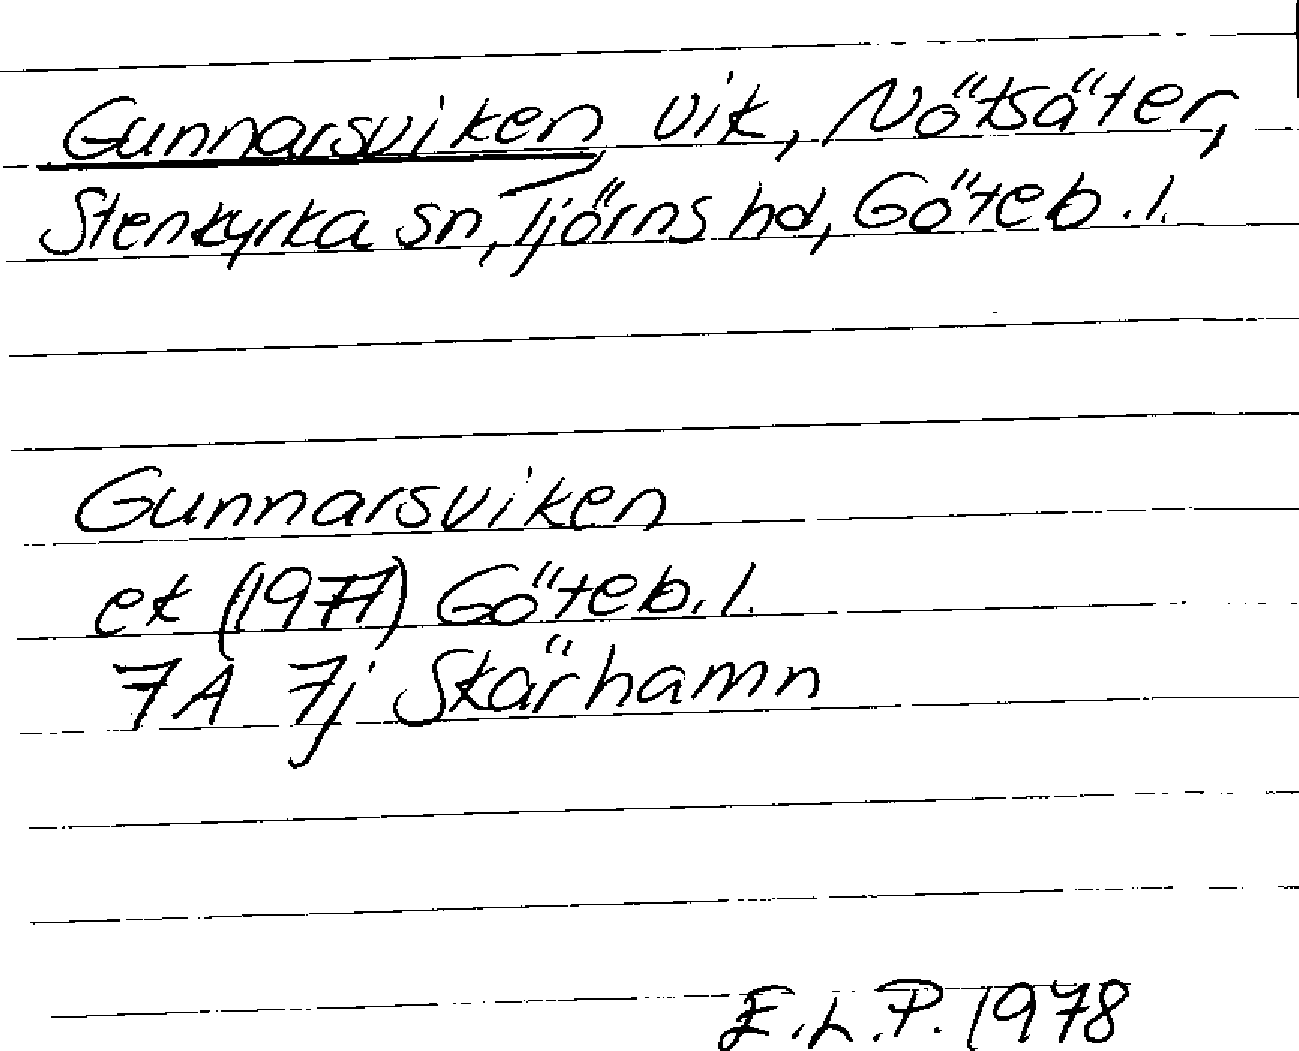 Gunnarsviken, vik, Nötsäter,
Stenkyrka sn, Tjörns hd, Göteb. l.
Gunnarsviken
ek (1977) Göteb. l.
7A 7j Skärhamn
E.L.P. 1978